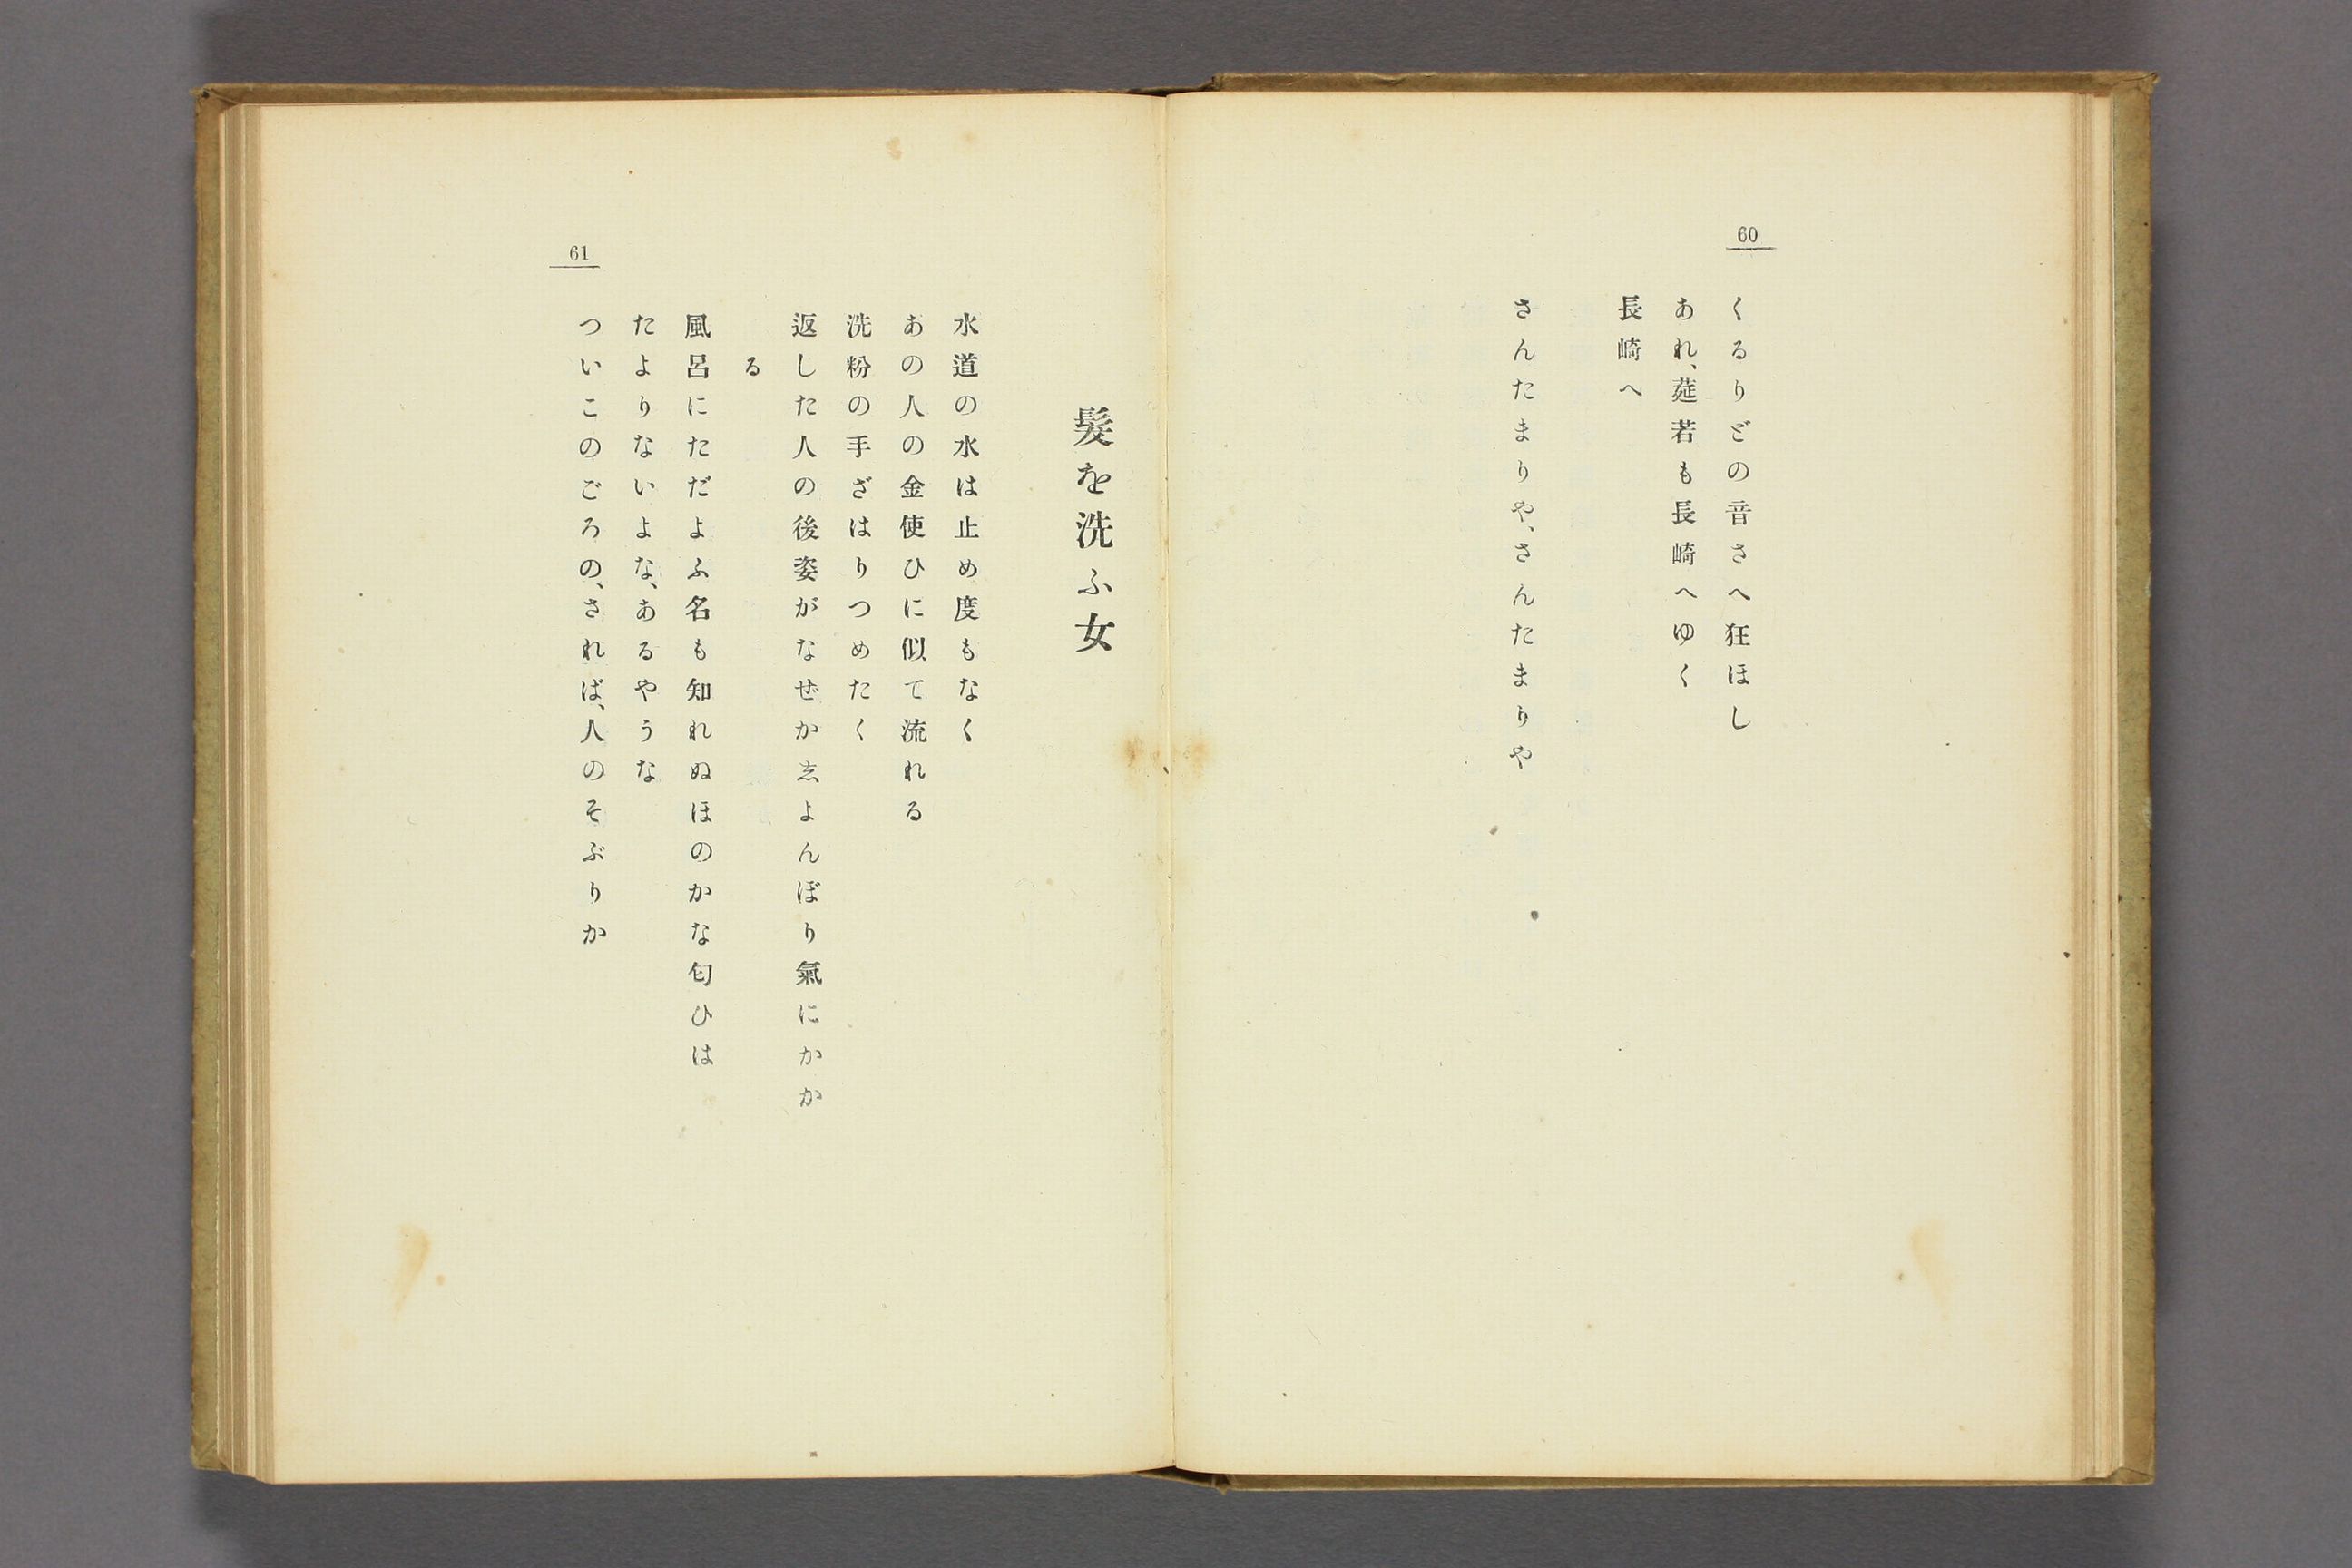 60
くるりどの音さへ狂ほし
あれ、莚若も長崎へゆく
長崎へ
さんたまりや、さんたまりや
髮を洗ふ女
水道の水は止め度もなく
あの人の金使ひに似て流れる
洗粉の手ざはりつめたく
返した人の後姿がなぜか志よんぼり氣にかか
る
風呂にただよふ名も知れぬほのかな匂ひは
たよりないよな、あるやうな
ついこのごろの、されば、人のそぶりか
61